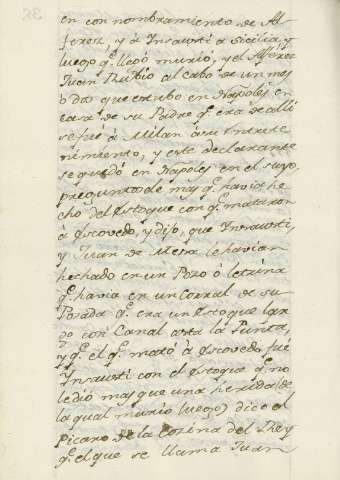 en con nombramiento de Al-
ferez, y á Insausti á Sicilia, y
luego q.e llegó murio, y el Alferez
Juan Rubio al cabo de un mes
ó dos que estubo en Napoles en
casa de su Padre q.e era de alli
se fué á Milan á su entrete
nimiento, y este declarante
se quedó en Napoles en el suyo,
preguntado de mas q.e havia he
cho del estoque con q.e mataron
á Escovedo, y dijo, que Insausti,
y Juan de Mesa le havian
hechado en un Pozo ó letrina
q.e havia en un Corral de su
Posada q.e era un Estoque lar
go con Canal asta la Punta,
y q.e el q.e mató á Escovedo fué
Insausti con el Estoque q.e no
le dió mas que una herida de
la qual murio luego, dice el
Picaro de la Cozina del Rey
q.e el que se llama Juan